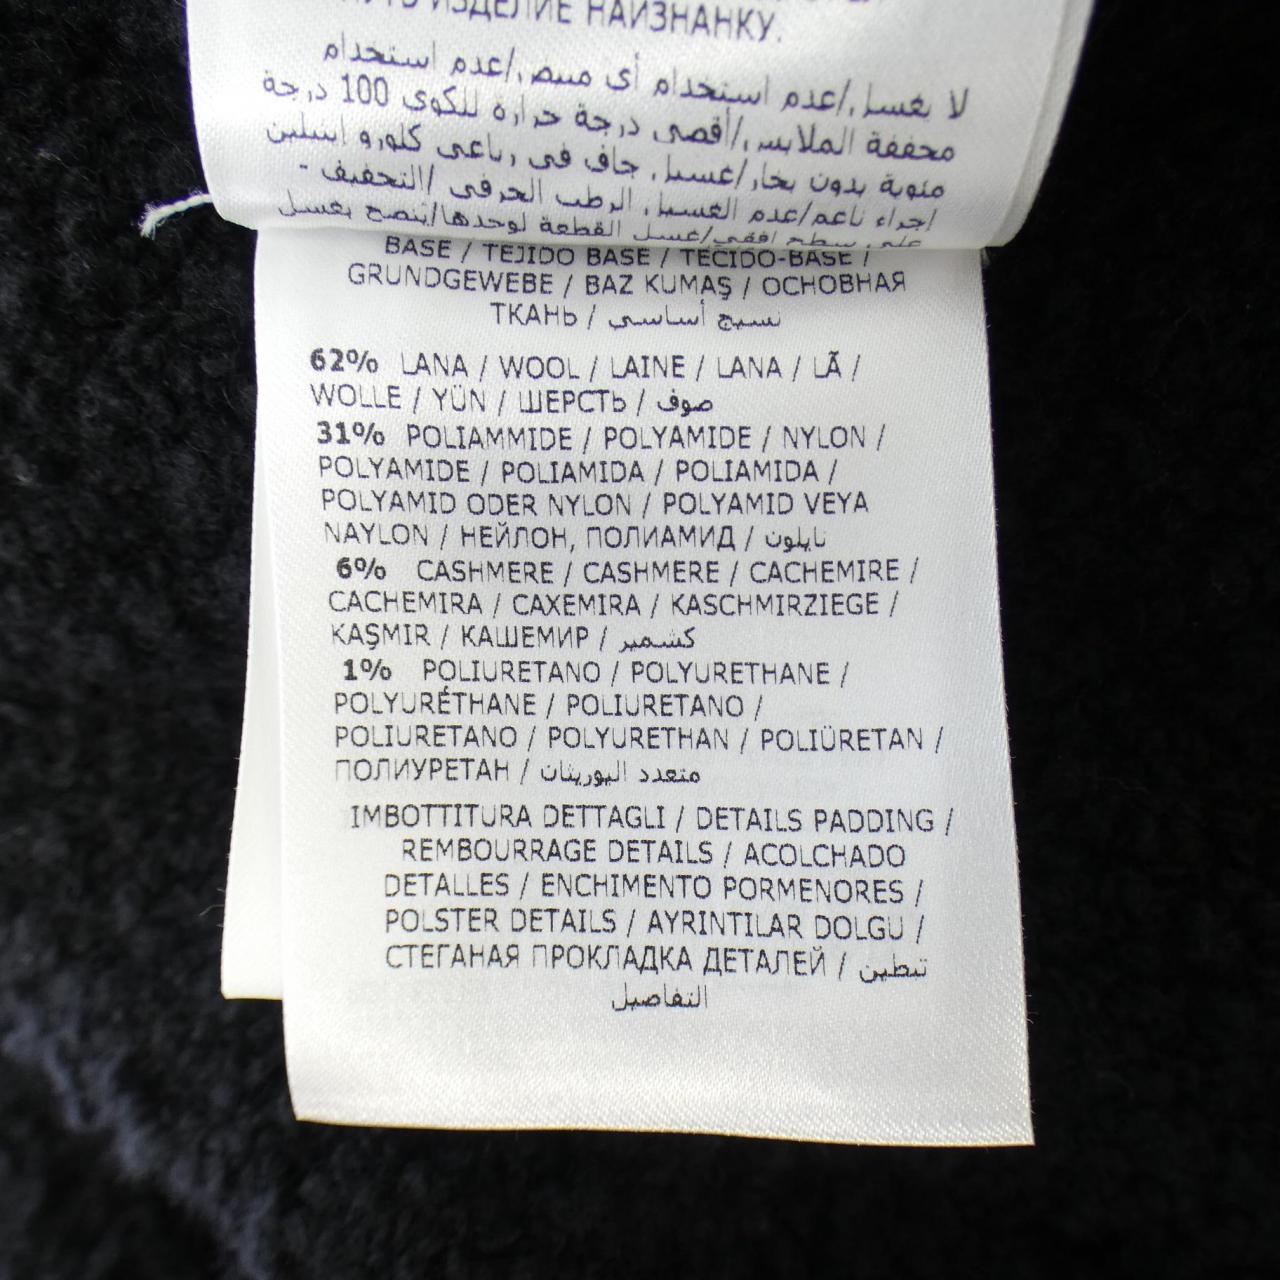 ИЗДЕЛИЕ НАИЗНАНКУ.
لا يغسل/عدم استخدام أي مبيض/عدم استخدام
مجففة الملابس/أقصى درجة حرارة للكوي 100 درجة
مئوية بدون بخار/غسيل جاف في رباعي كلورو ايثيلين
إجراء ناعم/عدم الغسيل الرطب الحرفي/التجفيف -
على سطح افقي/غسل القطعة لوحدها/ينصح بغسل
BASE / TEJIDO BASE / TECIDO-BASE /
GRUNDGEWEBE / BAZ KUMAŞ / ОСНОВНАЯ
ТКАНЬ / نسيج أساسي
62% LANA / WOOL / LAINE / LANA / LÃ /
WOLLE / YÜN / ШЕРСТЬ / صوف
31% POLIAMMIDE / POLYAMIDE / NYLON /
POLYAMIDE / POLIAMIDA / POLIAMIDA /
POLYAMID ODER NYLON / POLYAMID VEYA
NAYLON / НЕЙЛОН, ПОЛИАМИД / نايلون
6% CASHMERE / CASHMERE / CACHEMIRE /
CACHEMIRA / CAXEMIRA / KASCHMIRZIEGE /
KAŞMIR / КАШЕМИР / كشمير
1% POLIURETANO / POLYURETHANE /
POLYURÉTHANE / POLIURETANO /
POLIURETANO / POLYURETHAN / POLIÜRETAN /
ПОЛИУРЕТАН / متعدد اليوريثان
IMBOTTITURA DETTAGLI / DETAILS PADDING /
REMBOURRAGE DETAILS / ACOLCHADO
DETALLES / ENCHIMENTO PORMENORES /
POLSTER DETAILS / AYRINTILAR DOLGU /
СТЕГАНАЯ ПРОКЛАДКА ДЕТАЛЕЙ / تبطين
التفاصيل